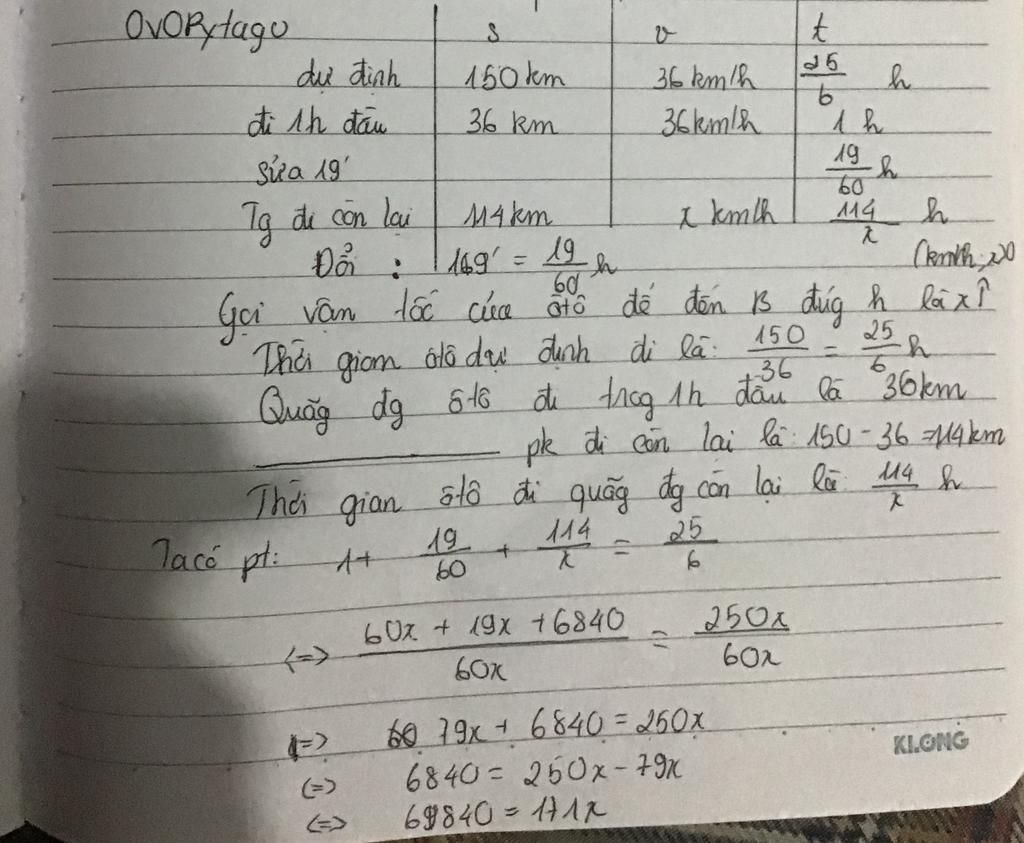 OVOPytago s v t
dự định 150 km 36 km/h 25/6 h
đi 1h đầu 36 km 36km/h 1 h
sửa 19' 19/60 h
Tg đi còn lại 114km x km/h 114/x h
Đổi : 19' = 19/60 h (km/h; x>0
Gọi vận tốc của ôtô để đến B đúg h là x↑
Thời gian ôtô dự định đi là: 150/36 = 25/6 h
Quãg đg ôtô đi trog 1h đầu là 36km
pk đi còn lại là: 150 - 36 = 114km
Thời gian ôtô đi quãg đg còn lại là: 114/x h
Ta có pt: 1 + 19/60 + 114/x = 25/6
<=> (60x + 19x + 6840)/60x = 250x/60x
<=> 79x + 6840 = 250x
<=> 6840 = 250x - 79x
<=> 6840 = 171x
KLONG